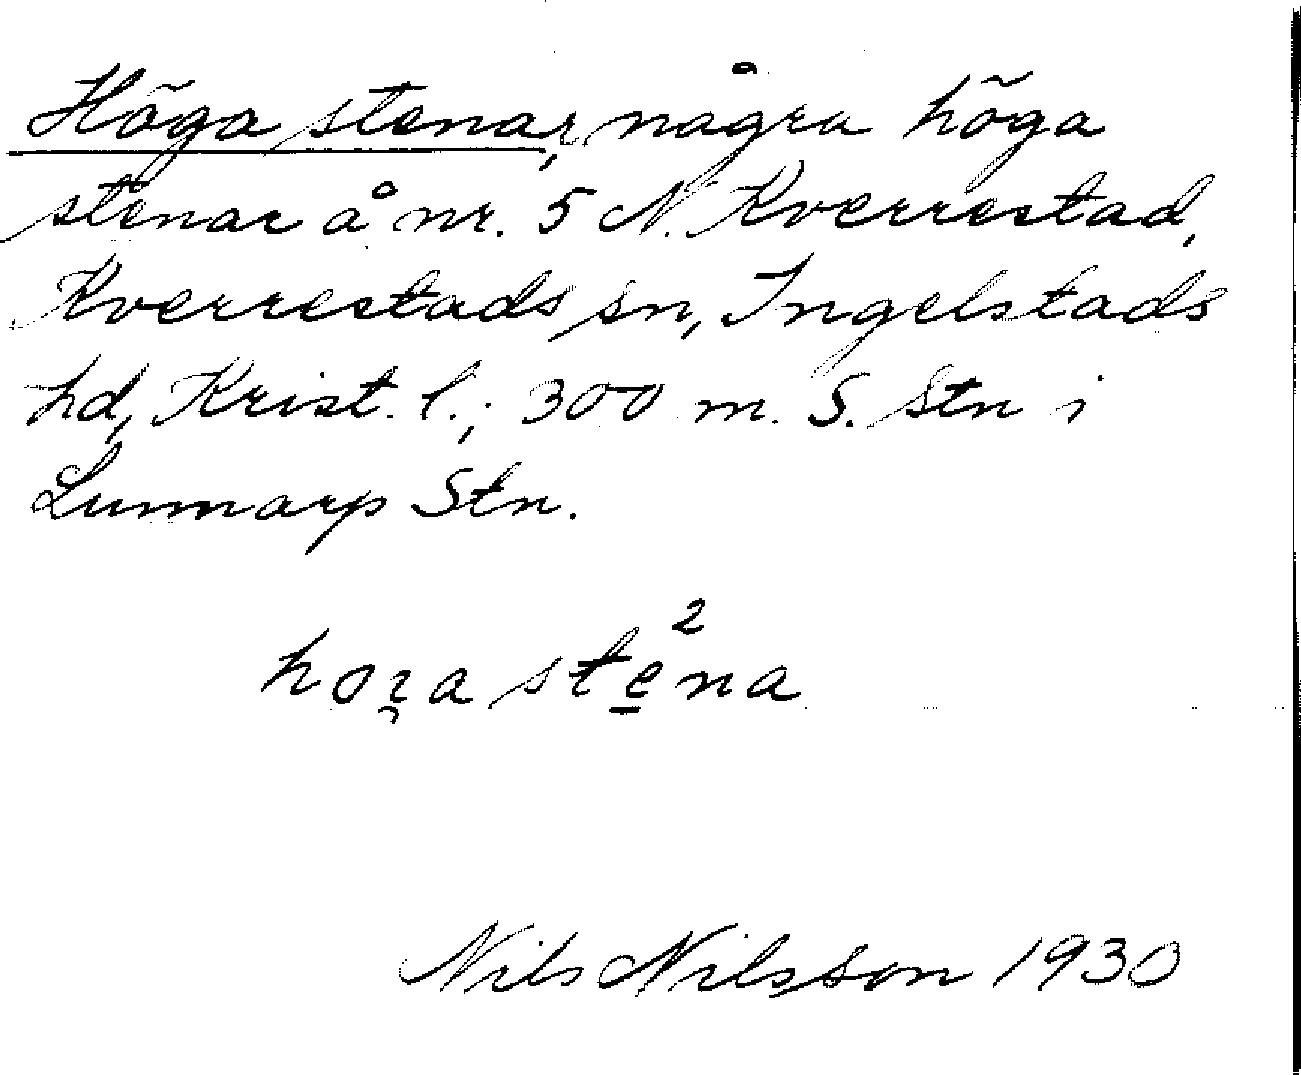 Höga stenar, några höga
stenar å nr. 5 N. Kverrestad,
Kverrestads sn, Ingelstads
hd, Krist. l.; 300 m. S. Stn i
Lunnarp Stn.
stena
Nils Nilsson 1930